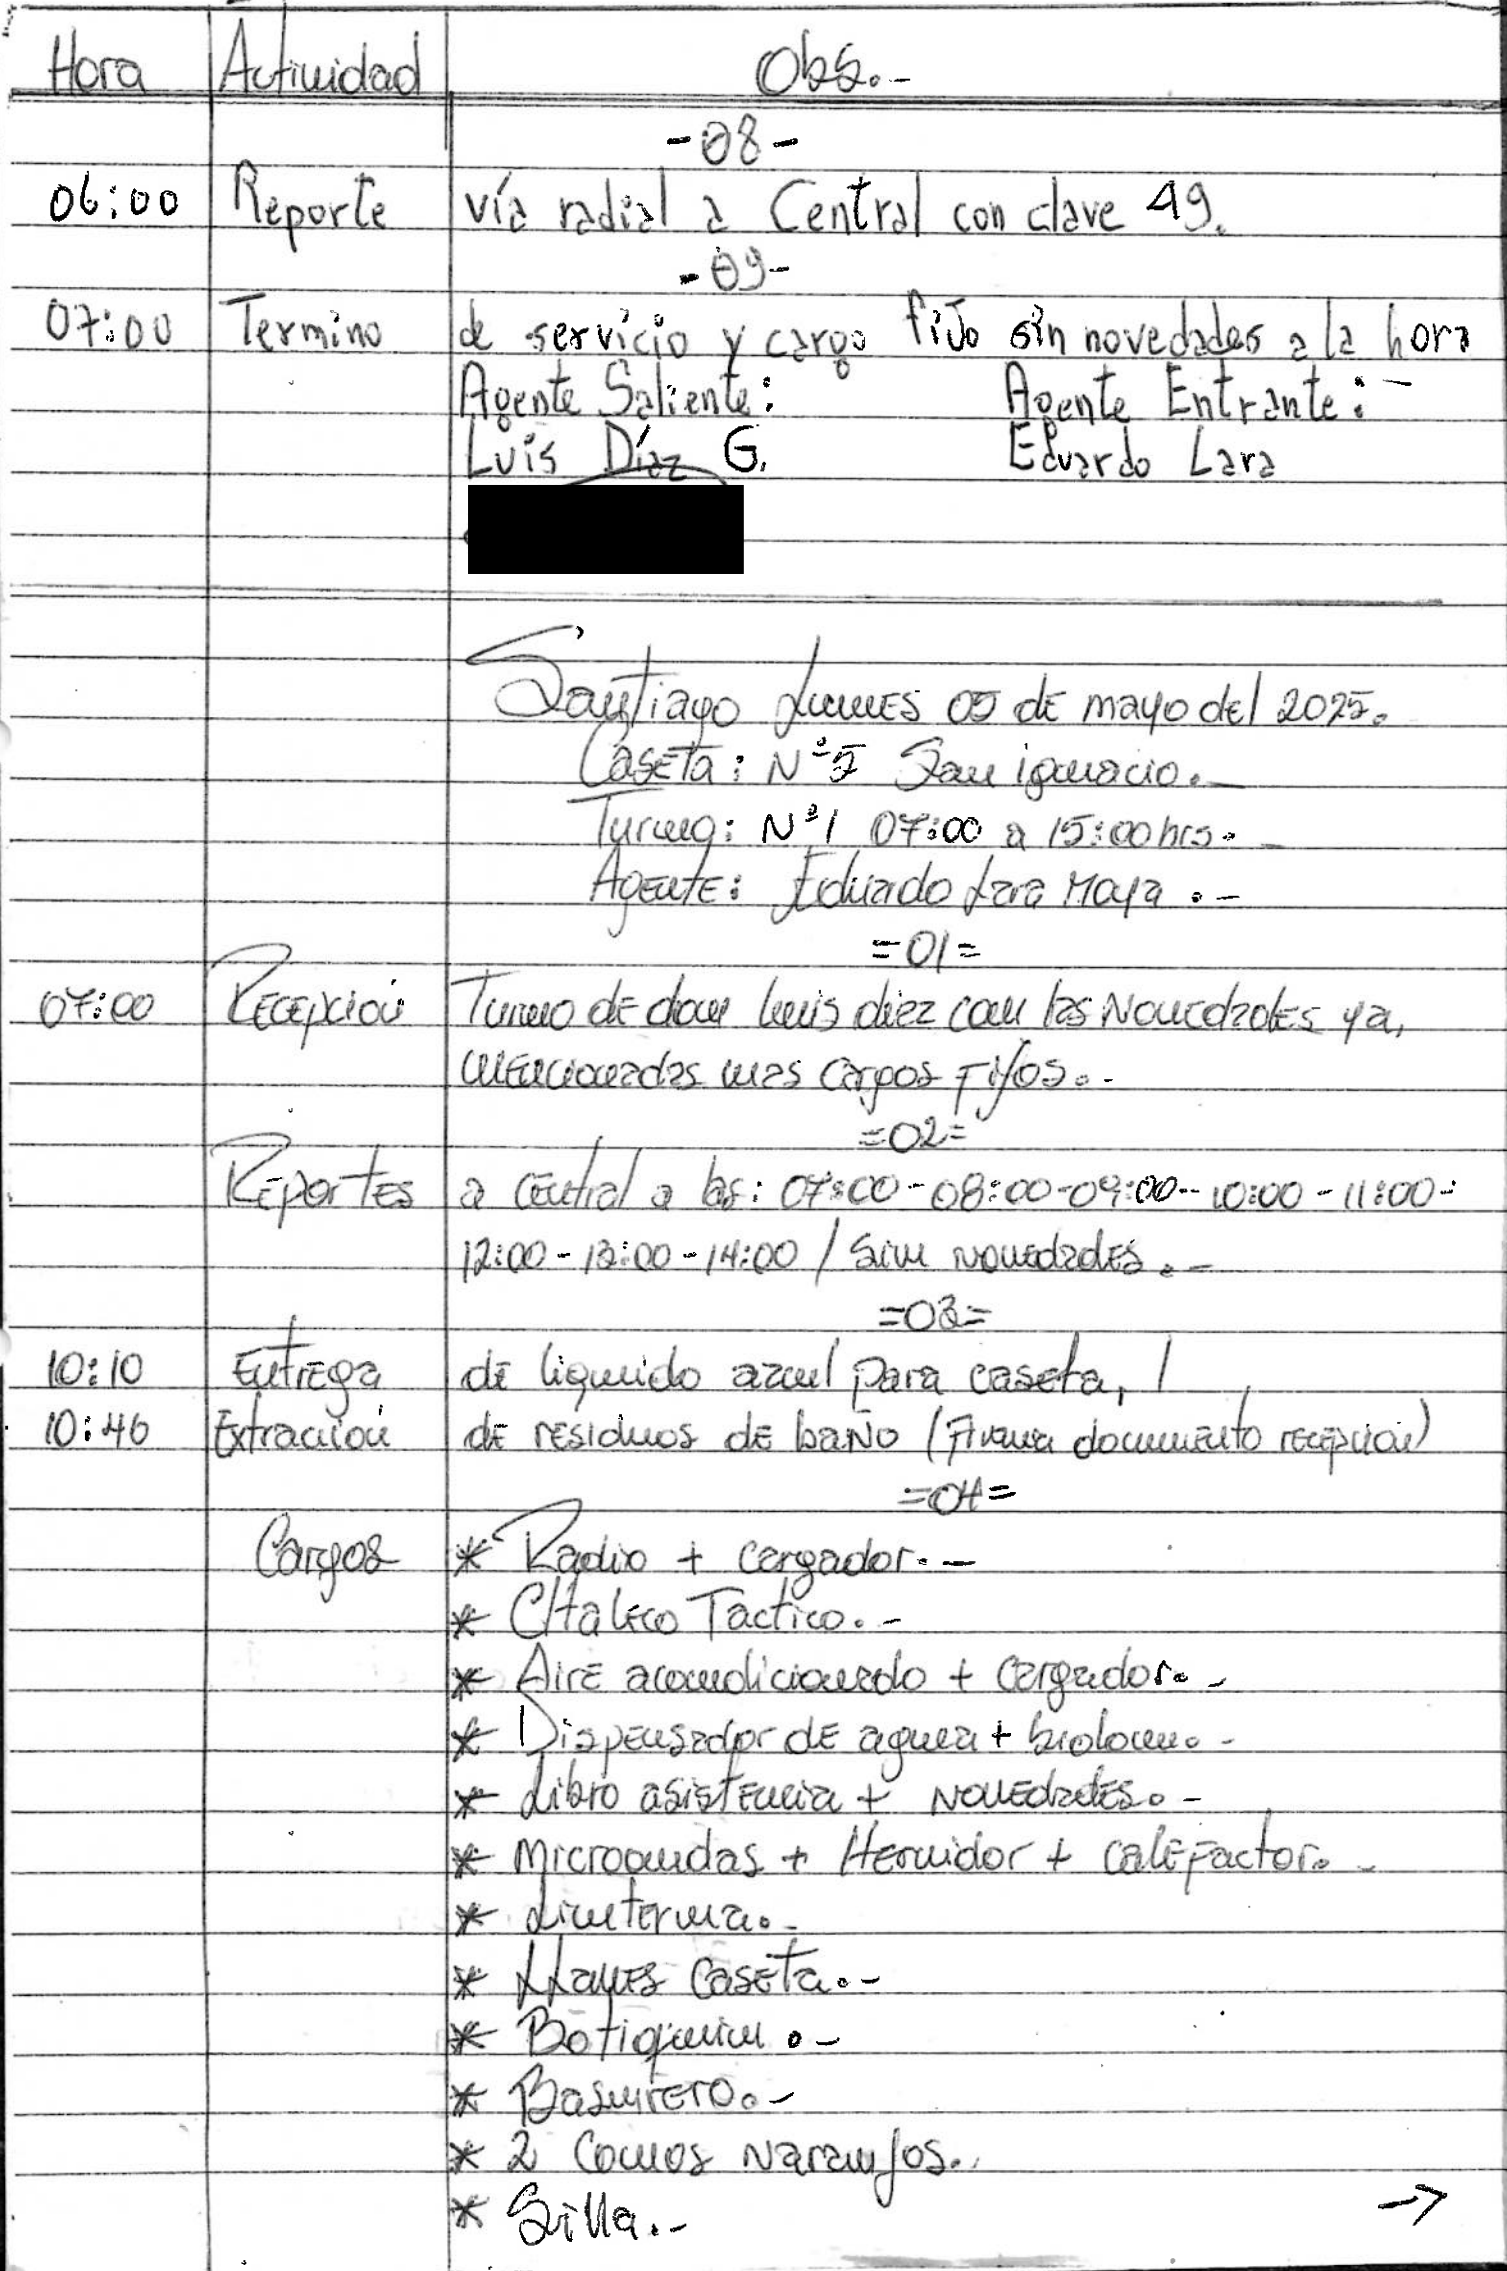 Hora Actividad Obs.-
-08-
06:00 Reporte vía radial a Central con clave 49.
-09-
07:00 Termino de servicio y cargo fijo sin novedades a la hora
Agente Saliente: Agente Entrante:-
Luis Díaz G. Eduardo Lara
Santiago Lunes 05 de mayo del 2025.
Caseta: N°5 San ignacio.-
Turno: N°1 07:00 a 15:00 hrs.-
Agente: Eduardo Lara Moya .-
=01=
07:00 Recepción Turno de don luis diaz con las Novedades ya,
mencionadas mas cargos Fijos.-
=02=
Reportes a central a las: 07:00-08:00-09:00-10:00-11:00-
12:00-13:00-14:00 / Sin novedades.-
=03=
10:10 Entrega de liquido azul para caseta, /
10:46 Extración de residuos de baño (Firma documento recepción)
=04=
Cargos * Radio + cargador.-
* CHaleco Tactico.-
* Aire acondicionado + cargador.-
* Dispensador de agua + bidon.-
* Libro asistencia + Novedades.-
* Microondas + Hervidor + caleFactor.-
* Linterna.-
* LLaves caseta.-
* Botiquin.-
* Basurero.-
* 2 Conos Naranjos.
* Silla.-
→